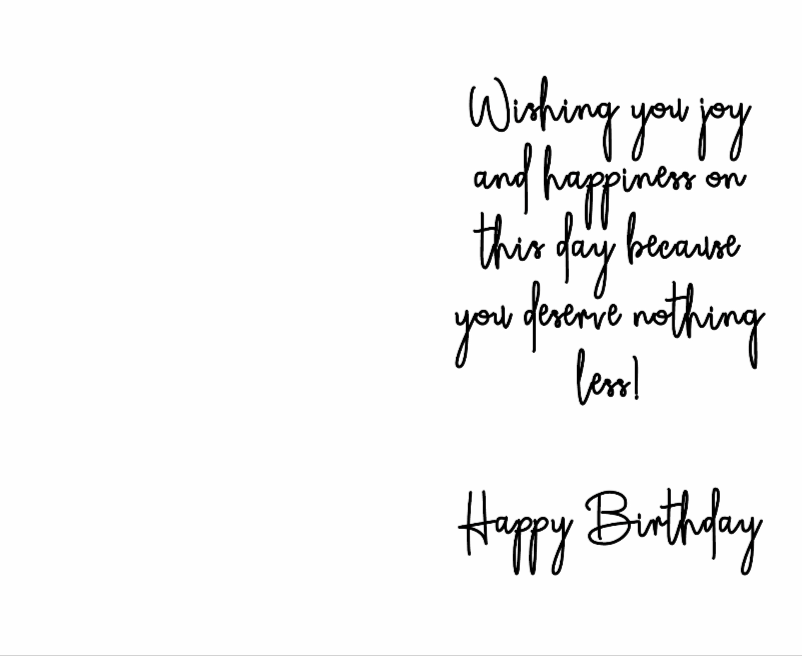 Wishing you joy
and happiness on
this day because
you deserve nothing
less!
Happy Birthday